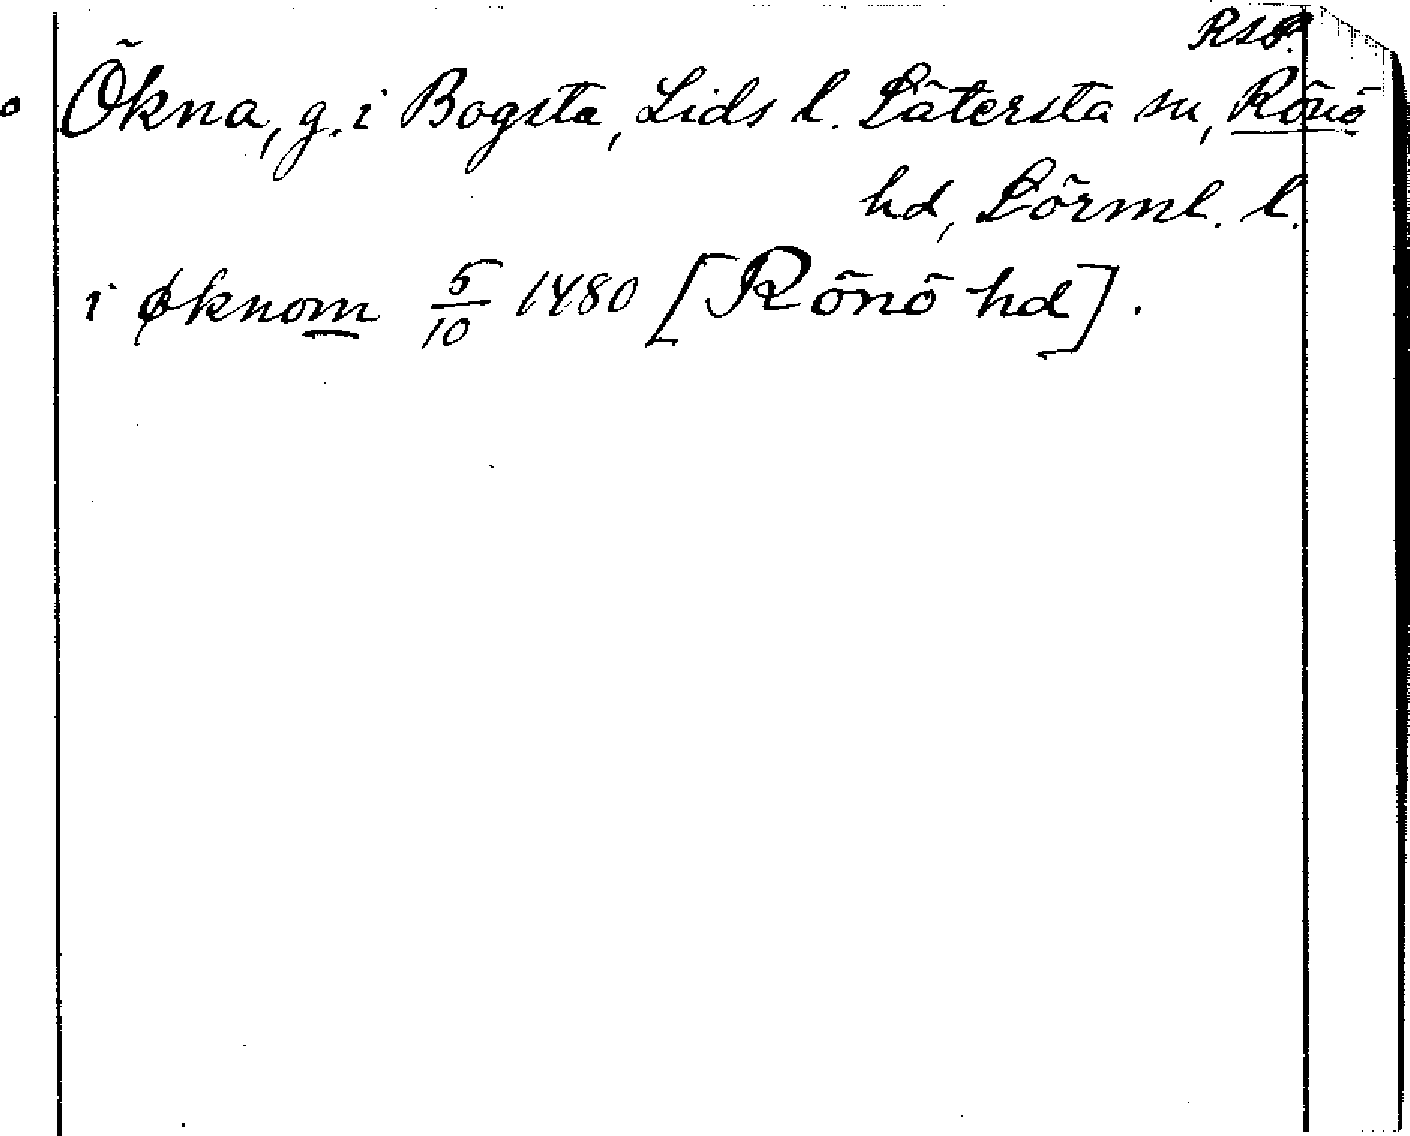 Ökna, g. i Bogsta, Lids l. Sätersta sn, Rönö
hd, Sörml. l.
i øknom 5/10 1480 [Rönö hd].